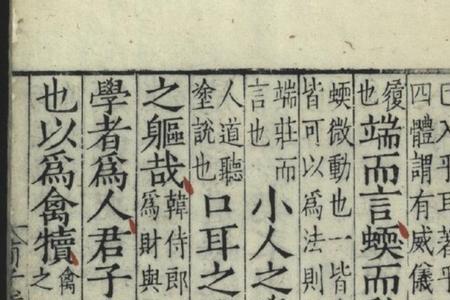 已入乎耳著乎
四體謂有威儀
履
也
端而言蝡而
蝡微動也一皆
皆可以爲法則
端莊而
言也
小人之
人道聽
塗說也
口耳之
之軀哉
韓侍郎
爲財與
學者爲人君子
也以爲禽犢
禽
之